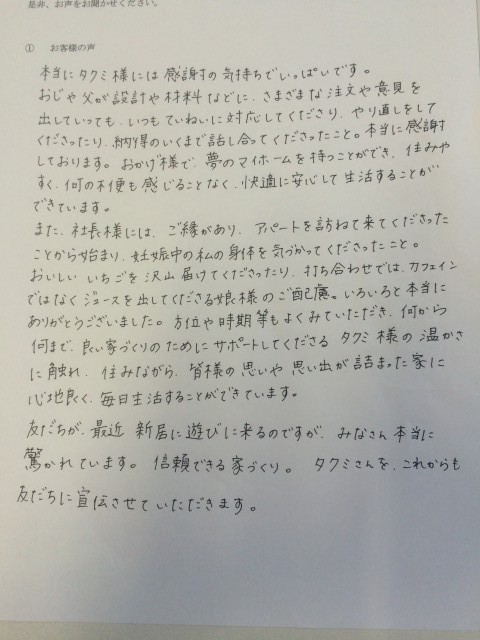 是非、お声をお聞かせください。
① お客様の声
本当にタクミ様には感謝の気持ちでいっぱいです。
おじゃ父が設計や材料などに、さまざまな注文や意見を
出していっても、いつもていねいに対応してくださり、やり直しをして
くださったり、納得のいくまで話し合ってくださったこと。本当に感謝
しております。おかげ様で、夢のマイホームを持つことができ、住みや
すく、何の不便も感じることなく、快適に安心して生活することが
できています。
また、社長様には、ご縁があり、アパートを訪ねて来てくださった
ことから始まり、妊娠中の私の身体を気づかってくださったこと。
おいしいいちごを沢山届けてくださったり、打ち合わせでは、カフェイン
ではなくジュースを出してくださる娘様のご配慮。いろいろと本当に
ありがとうございました。方位や時期等もよくみていただき、何から
何まで、良い家づくりのためにサポートしてくださるタクミ様の温かさ
に触れ、住みながら、皆様の思いや思い出が詰まった家に
心地良く、毎日生活することができています。
友だちが、最近新居に遊びに来るのですが、みなさん本当に
驚かれています。信頼できる家づくり。タクミさんを、これからも
友だちに宣伝させていただきます。